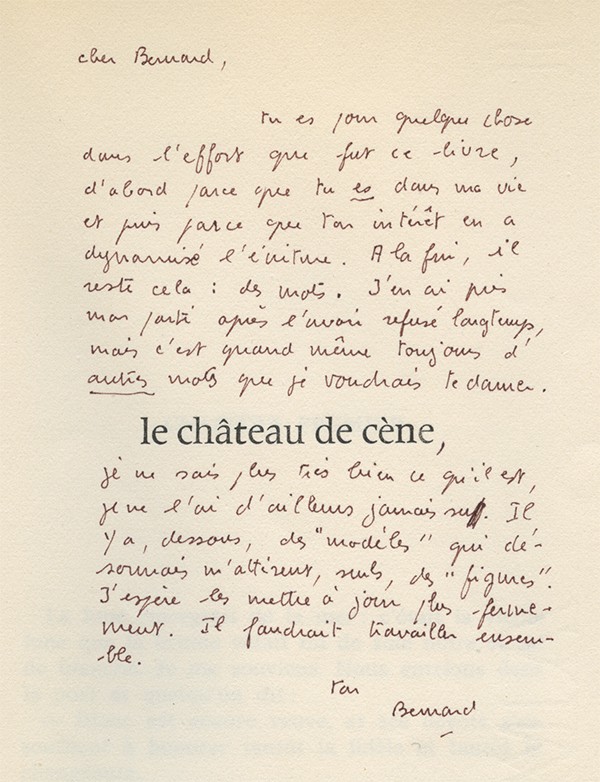 cher Bernard,
tu es pour quelque chose
dans l'effort que fut ce livre,
d'abord parce que tu es dans ma vie
et puis parce que ton intérêt en a
dynamisé l'écriture. A la fin, il
reste cela : des mots. J'en ai pris
mon parti après l'avoir refusé longtemps,
mais c'est quand même toujours d'
autres mots que je voudrais te donner.
le château de cène,
je ne sais plus très bien ce qu'il est,
je ne l'ai d'ailleurs jamais su. Il
y a, dessous, des "modèles" qui dé-
sormais m'attirent, seuls, des "figures".
J'espère les mettre à jour plus ferme-
ment. Il faudrait travailler ensem-
ble.
ton
Bernard